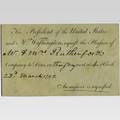 The President of the United States
and Mrs Washington, request the Pleasure of
Mr & Mrs Rutherfurd's
Company to Dine, on Thursday next, at 4 o'Clock.
23d March 1792.
An answer is requested.